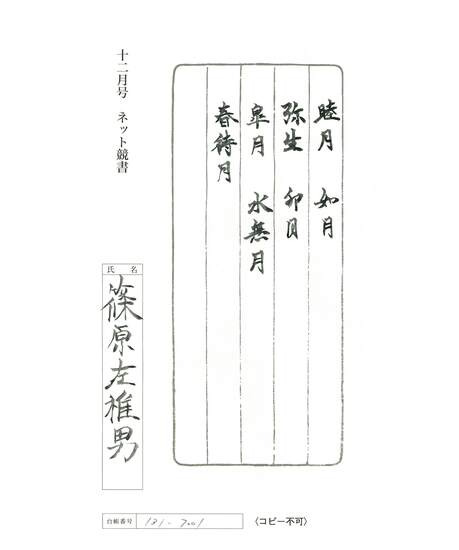 睦月　如月
弥生　卯月
皐月　水無月
春待月
十二月号　ネット競書
氏名
篠原左雅男
台帳番号 131-7001
〈コピー不可〉